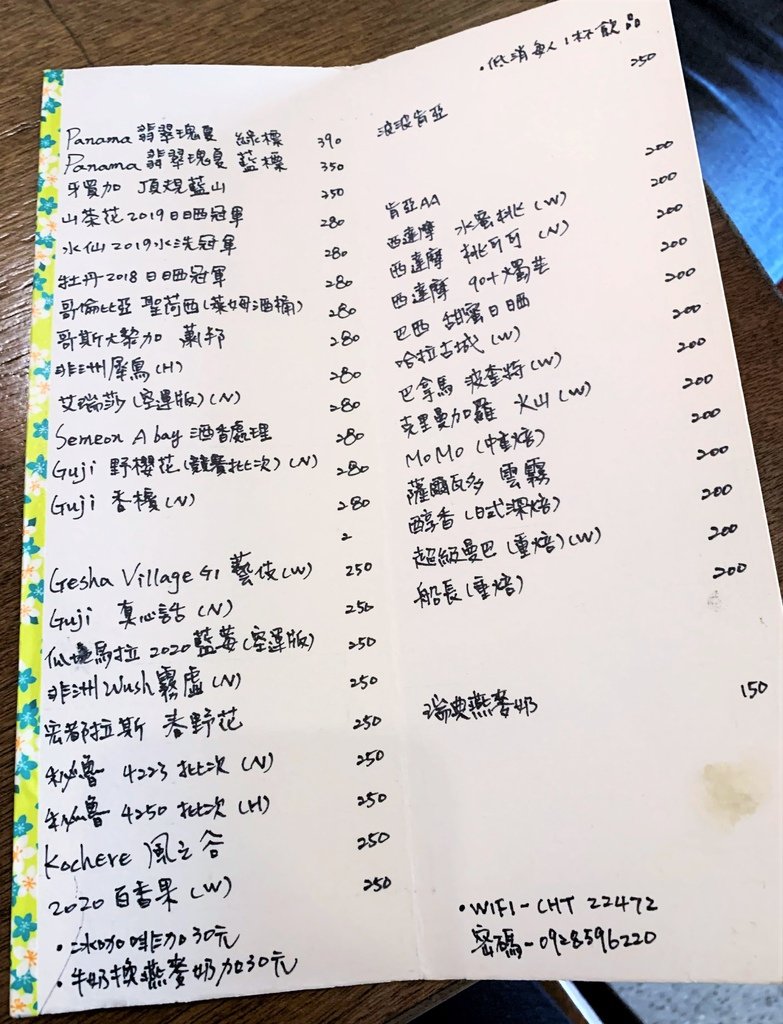 Panama 翡翠瑰夏 綠標 390
Panama 翡翠瑰夏 藍標 350
牙買加 頂規藍山 350
山茶花2019日晒冠軍 280
水仙2019水洗冠軍 280
牡丹2018日晒冠軍 280
哥倫比亞 聖荷西(萊姆酒桶) 280
哥斯大黎加 蕭邦 280
非洲犀鳥(H) 280
艾瑞莎(空運版)(N) 280
Semeon Abay 酒香處理 280
Guji 野櫻花(競賽批次)(N) 280
Guji 香檳(N) 280
2
Gesha Village G1 藝伎(W) 250
Guji 真心話(N) 250
瓜地馬拉 2020藍莓(空運版) 250
非洲Wush霧虛(N) 250
宏都拉斯 春野花 250
秘魯 4223批次(N) 250
秘魯 4250批次(H) 250
Kochere 風之谷 250
2020百香果(W) 250
·冰咖啡加30元
·牛奶換燕麥奶加30元
·低消每人1杯飲品
波波肯亞 250
肯亞AA 200
西達摩 水蜜桃(W) 200
西達摩 桃可可(N) 200
西達摩 90+燭芒 200
巴西 甜蜜日晒 200
哈拉古城(W) 200
巴拿馬 波奎特(W) 200
克里曼加羅 火山(W) 200
MoMo(中重焙) 200
薩爾瓦多 雲霧 200
醇香(日式深焙) 200
超級曼巴(重焙)(W) 200
船長(重焙) 200
瑞典燕麥奶 150
·WIFI-CHT 22472
密碼-0928596220